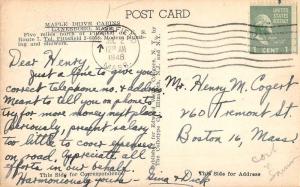 POST CARD
MAPLE DRIVE CABINS
LANESBORO, MASS.
Five miles north of
Route 7. Tel. Pittsfield
and showers.
12 PM
1948
1 CENT 1
Dear Henry,
Just a line to give you
correct telephone no. & address.
Meant to tell you on phone to
try for more money next place
Seriously, present salary
too little to cover expenses
on road. Appreciate all
efforts on our behalf.
This Side for Correspondence
Harmoniously yours -
Gina & Dick
Mr. Henry M. Cogert
260 Tremont St.
Boston 16, Mass
This Side for Address